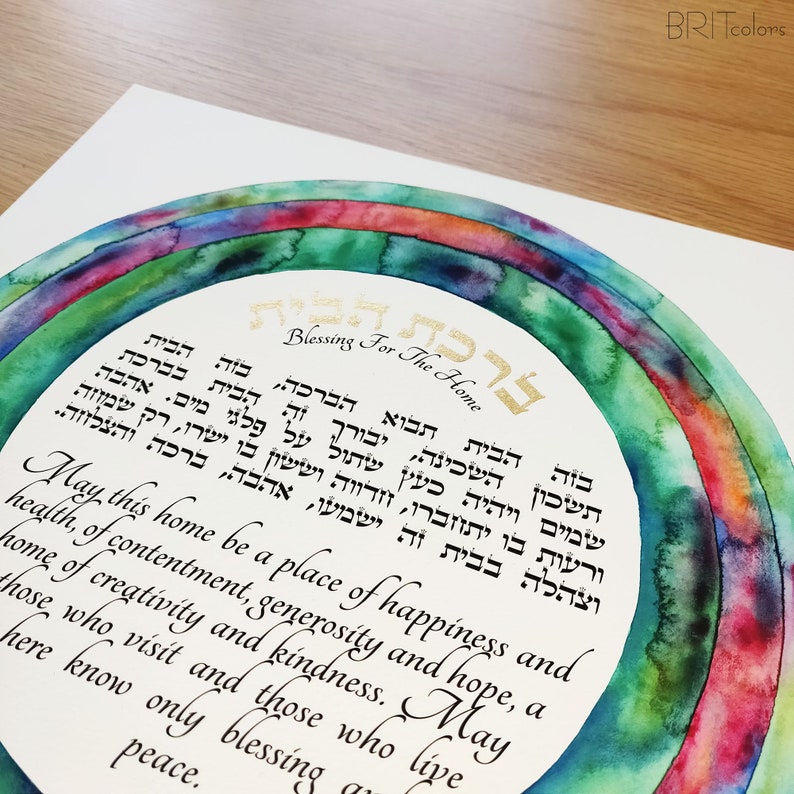 BRITcolors
ברכת הבית
Blessing For The Home
בזה הבית תבוא הברכה, בזה הבית
תשכון השכינה, יבורך זה הבית בברכת
שמים ויהיה כעץ שתול על פלגי מים. אהבה
ורעות בו יתחברו, חדווה וששון בו ישרו, רק שמחה
וצהלה בבית זה ישמעו, אהבה, ברכה והצלחה.
May this home be a place of happiness and
health, of contentment, generosity and hope, a
home of creativity and kindness. May
those who visit and those who live
here know only blessing and
peace.